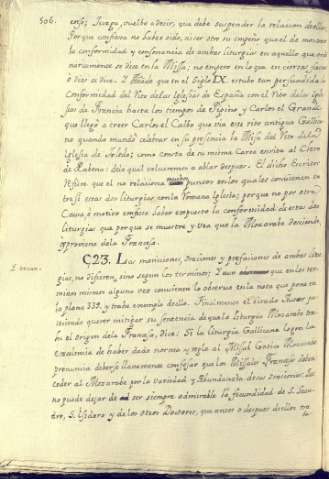 506.
ense; Juego, vuelve a decir, que debe suspender la relacion de ellas
Porque confiesa no haber sido, ni ser otro su empeño que el de mostrar
la conformidad y consonancia de ambas liturgias en aquello que ordi-
nariamente se dice en la Missa; no empero en lo que en ciertas fiestas
ó dias se dice. Y Añade que en el Siglo IX. estubo tan persuadida la
Conformidad del Rito de las Iglesias de España con el Rito de las Igle-
sias de Francia hasta los tiempos de Pepino y Carlos el Grande
que llegó a creer Carlos el Calbo que via este rito antiguo Gallica-
no quando mandó celebrar en su presencia la Misa del Rito de la
Iglesia de Toledo; como consta de su misma Carta escrita al Clero
de Rabena: de la qual volveremos a ablar despues. El dicho Escritor
Refiere que el no relaciona muchos puntos en los quales convienen en-
tre si estas dos liturgias con la Romana Iglesia; porque no por otra
Causa ó motivo empezó saber compuesto la conformidad de estas dos
liturgias que porque se muestre y vea que la Mozarabe desciende,
y proviene de la Francesa.
§23. Las moniciones, Oraciones y prefaciones de ambas litur-
gias, no difieren, sino segun los terminos; Y aun que en los ter-
minos mismos alguna vez convienen lo observa en la nota que pone en
la plana 339. y trahe exemplo de ello. Finalmente el citado Autor pa-
reciendo querer mitigar su sentencia de que la Liturgia Mozarabe tra-
jo el origen de la Francesa, dice: Si la liturgia Gallicana logra la
excelencia de haber dado norma y regla al Missal Gothico Mozarabe
pronuncia deberse llanamente confesar que los Missales Franceses deben
ceder al Mozarabe por la variedad y Abundancia de sus oraciones. Y
no puede dejar de ser siempre admirable la fecundidad de S. Lean-
dro, S. Ysidoro y de los otros Doctores, que antes ó despues de ellos tra-